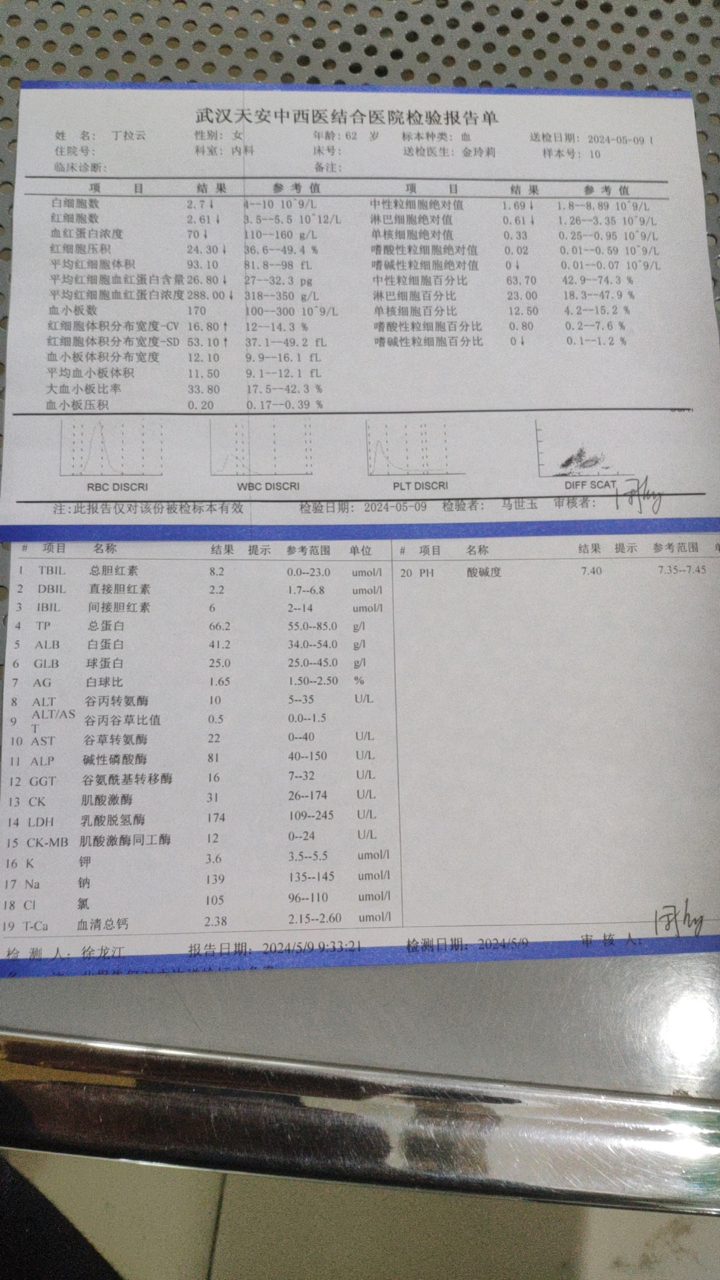 武汉天安中西医结合医院检验报告单
姓 名: 丁拉云 性别: 女 年龄: 62 岁 标本种类: 血 送检日期: 2024-05-09
住院号: 科室: 内科 床号: 送检医生: 金玲莉 样本号: 10
临床诊断: 备注:
项 目 结 果 参 考 值 项 目 结 果 参 考 值
白细胞数 2.7↓ 4--10 10^9/L 中性粒细胞绝对值 1.69↓ 1.8--8.89 10^9/L
红细胞数 2.61↓ 3.5--5.5 10^12/L 淋巴细胞绝对值 0.61↓ 1.26--3.35 10^9/L
血红蛋白浓度 70↓ 110--160 g/L 单核细胞绝对值 0.33 0.25--0.95 10^9/L
红细胞压积 24.30↓ 36.6--49.4 % 嗜酸性粒细胞绝对值 0.02 0.01--0.59 10^9/L
平均红细胞体积 93.10 81.8--98 fL 嗜碱性粒细胞绝对值 0↓ 0.01--0.07 10^9/L
平均红细胞血红蛋白含量 26.80↓ 27--32.3 pg 中性粒细胞百分比 63.70 42.9--74.3 %
平均红细胞血红蛋白浓度 288.00↓ 318--350 g/L 淋巴细胞百分比 23.00 18.3--47.9 %
血小板数 170 100--300 10^9/L 单核细胞百分比 12.50 4.2--15.2 %
红细胞体积分布宽度-CV 16.80↑ 12--14.3 % 嗜酸性粒细胞百分比 0.80 0.2--7.6 %
红细胞体积分布宽度-SD 53.10↑ 37.1--49.2 fL 嗜碱性粒细胞百分比 0↓ 0.1--1.2 %
血小板体积分布宽度 12.10 9.9--16.1 fL
平均血小板体积 11.50 9.1--12.1 fL
大血小板比率 33.80 17.5--42.3 %
血小板压积 0.20 0.17--0.39 %
RBC DISCRI WBC DISCRI PLT DISCRI DIFF SCAT
注:此报告仅对该份被检标本有效 检验日期: 2024-05-09 检验者: 马世玉 审核者:
# 项目 名称 结果 提示 参考范围 单位 # 项目 名称 结果 提示 参考范围
1 TBIL 总胆红素 8.2 0.0--23.0 umol/l 20 PH 酸碱度 7.40 7.35--7.45
2 DBIL 直接胆红素 2.2 1.7--6.8 umol/l
3 IBIL 间接胆红素 6 2--14 umol/l
4 TP 总蛋白 66.2 55.0--85.0 g/l
5 ALB 白蛋白 41.2 34.0--54.0 g/l
6 GLB 球蛋白 25.0 25.0--45.0 g/l
7 AG 白球比 1.65 1.50--2.50 %
8 ALT 谷丙转氨酶 10 5--35 U/L
9 ALT/AST 谷丙谷草比值 0.5 0.0--1.5
10 AST 谷草转氨酶 22 0--40 U/L
11 ALP 碱性磷酸酶 81 40--150 U/L
12 GGT 谷氨酰基转移酶 16 7--32 U/L
13 CK 肌酸激酶 31 26--174 U/L
14 LDH 乳酸脱氢酶 174 109--245 U/L
15 CK-MB 肌酸激酶同工酶 12 0--24 U/L
16 K 钾 3.6 3.5--5.5 umol/l
17 Na 钠 139 135--145 umol/l
18 Cl 氯 105 96--110 umol/l
19 T-Ca 血清总钙 2.38 2.15--2.60 umol/l
检 测 人: 徐龙江 报告日期: 2024/5/9 9:33:21 检测日期: 2024/5/9 审 核 人: